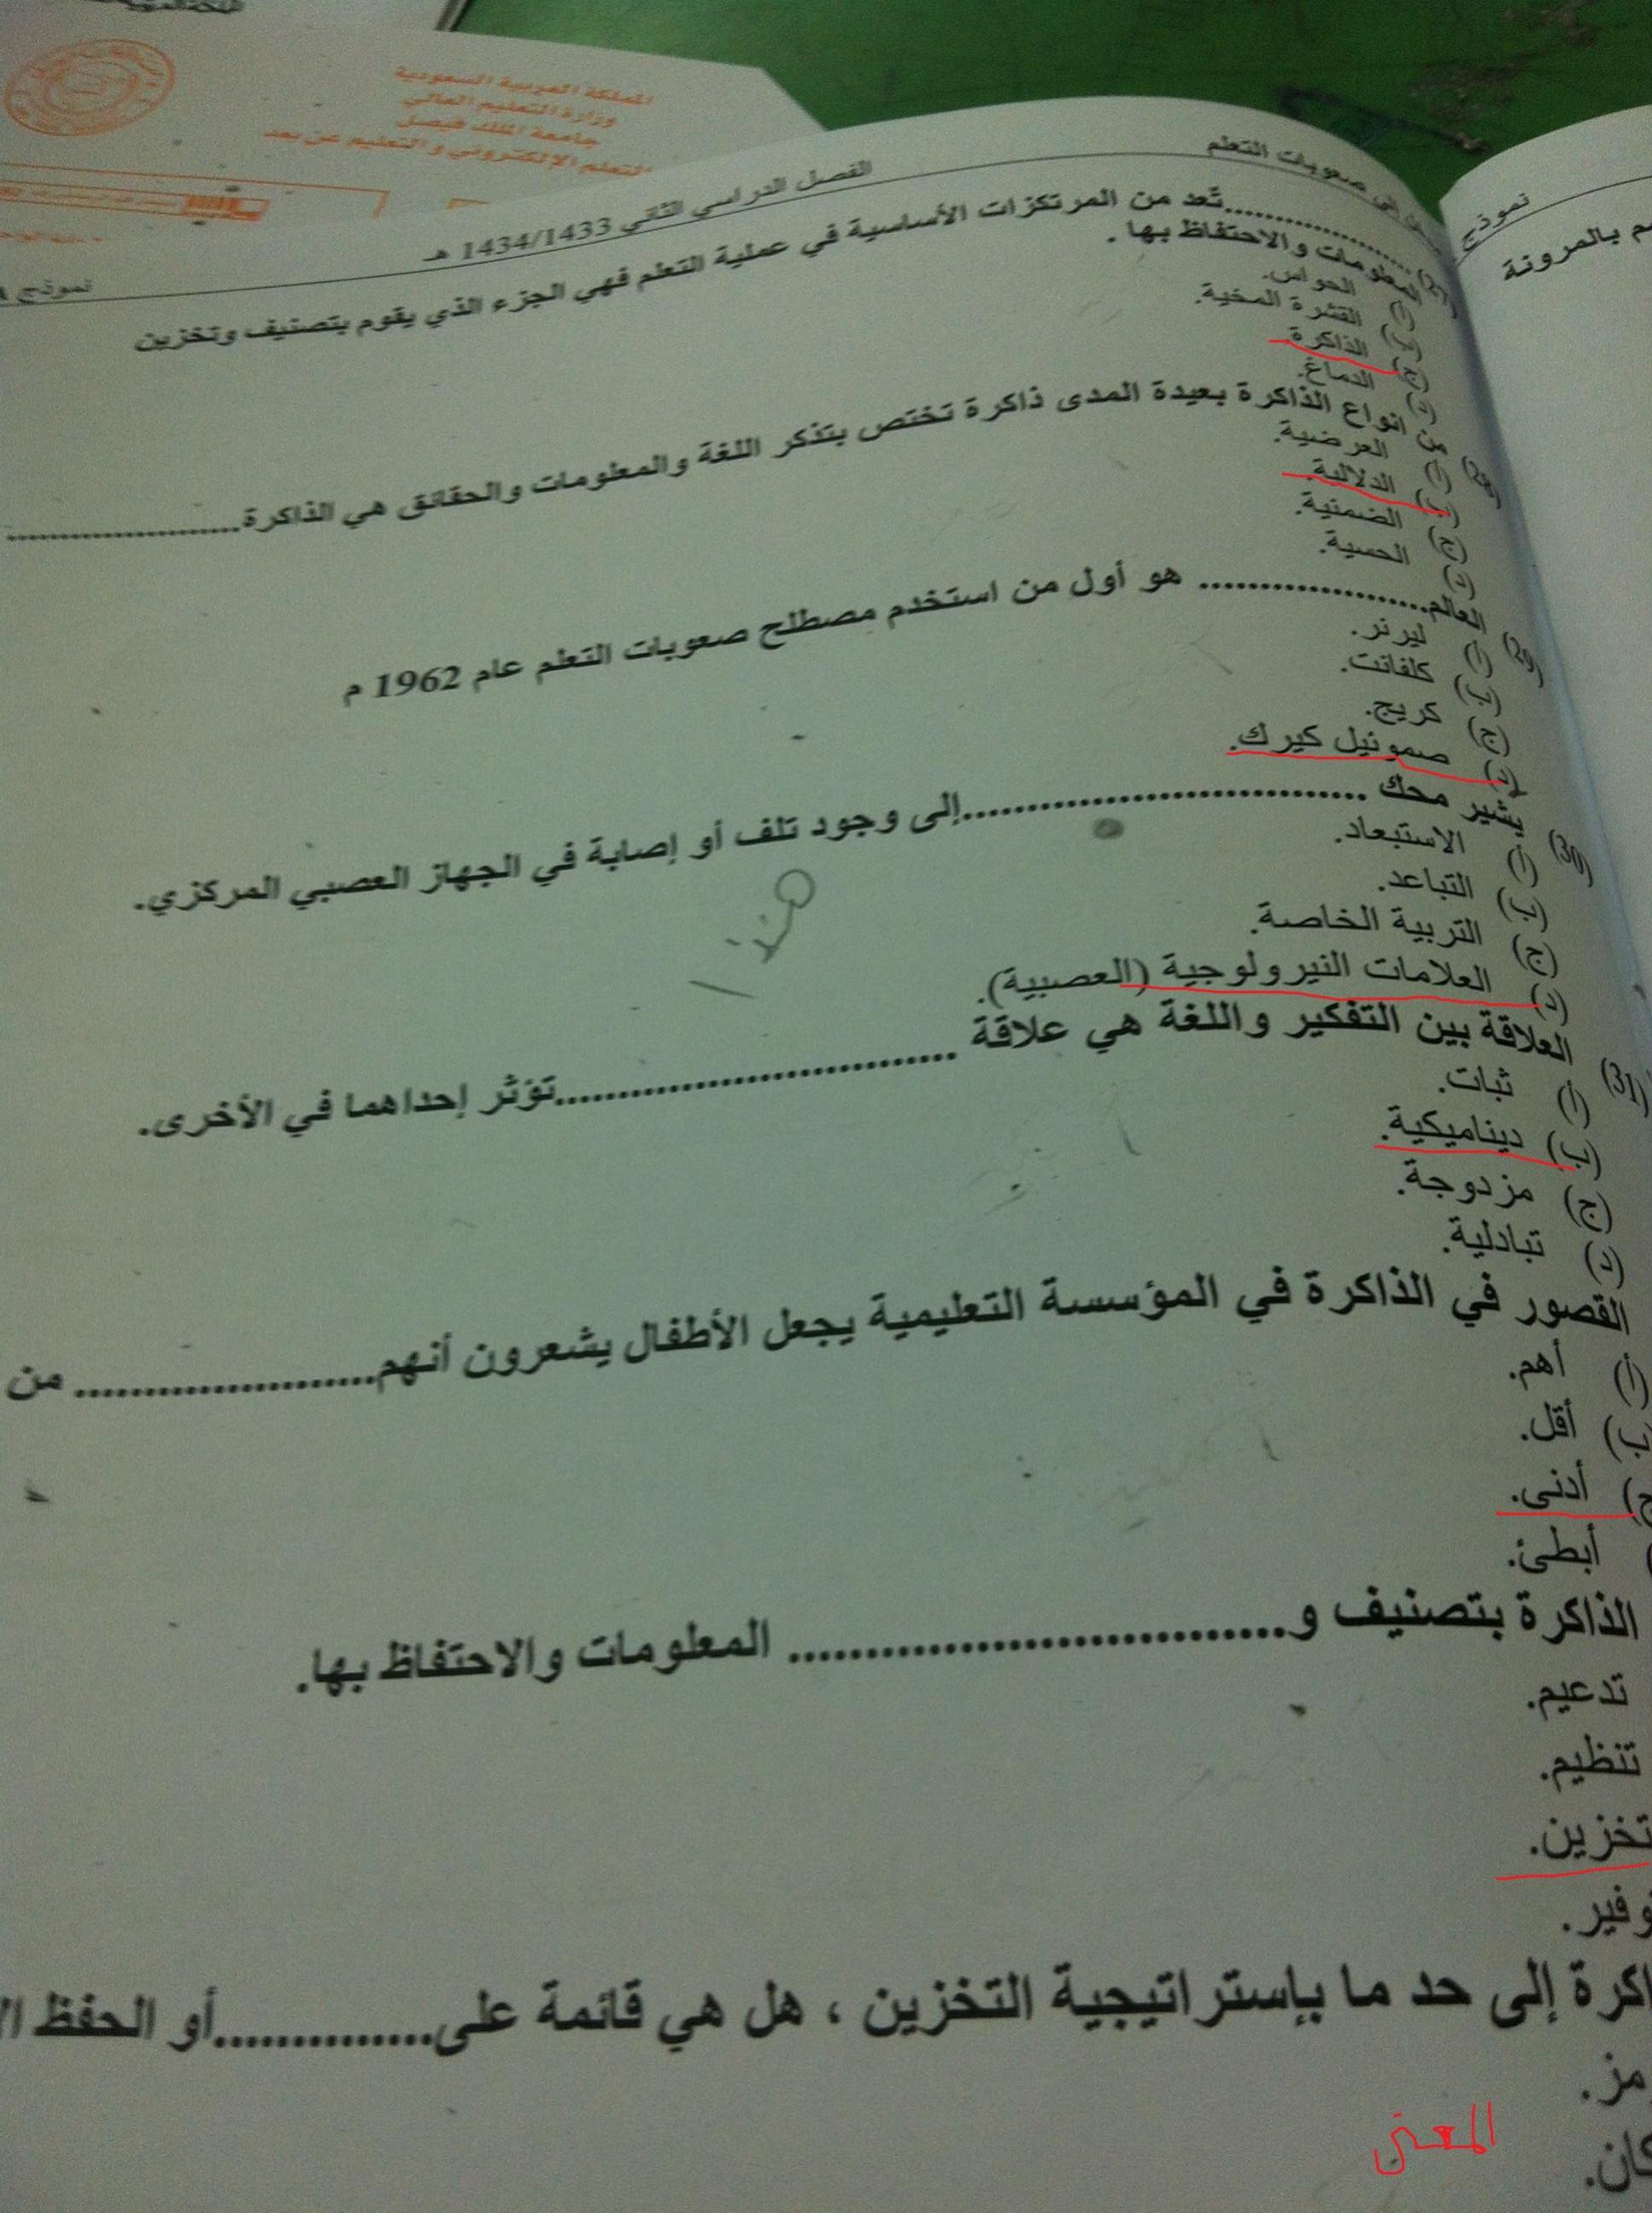 المملكة العربية السعودية
وزارة التعليم العالي
جامعة الملك فيصل
التعلم الإلكتروني والتعليم عن بعد
نموذج A
إلى صعوبات التعلم
الفصل الدراسي الثاني 1434/1433 هـ
نموذج
بالمرونة
(27) ..........................تعد من المرتكزات الأساسية في عملية التعلم فهي الجزء الذي يقوم بتصنيف وتخزين
المعلومات والاحتفاظ بها .
أ) الحواس.
ب) القشرة المخية.
ج) الذاكرة.
د) الدماغ.
(28) من انواع الذاكرة بعيدة المدى ذاكرة تختص بتذكر اللغة والمعلومات والحقائق هي الذاكرة......................
أ) العرضية.
ب) الدلالية.
ج) الضمنية.
د) الحسية.
(29) العالم..................... هو أول من استخدم مصطلح صعوبات التعلم عام 1962 م
أ) ليرنر.
ب) كلفانت.
ج) كريج.
د) صموئيل كيرك.
(30) يشير محك ..............................إلى وجود تلف أو إصابة في الجهاز العصبي المركزي.
أ) الاستبعاد.
ب) التباعد.
ج) التربية الخاصة.
د) العلامات النيرولوجية (العصبية).
(31) العلاقة بين التفكير واللغة هي علاقة ..............................تؤثر إحداهما في الأخرى.
أ) ثبات.
ب) ديناميكية.
ج) مزدوجة.
د) تبادلية.
القصور في الذاكرة في المؤسسة التعليمية يجعل الأطفال يشعرون أنهم...................... من
أ) أهم.
ب) أقل.
ج) أدنى.
أبطئ.
الذاكرة بتصنيف و.............................. المعلومات والاحتفاظ بها.
تدعيم.
تنظيم.
تخزين.
وفير.
اكرة إلى حد ما بإستراتيجية التخزين ، هل هي قائمة على...............أو الحفظ
مز.
المعنى
كان.